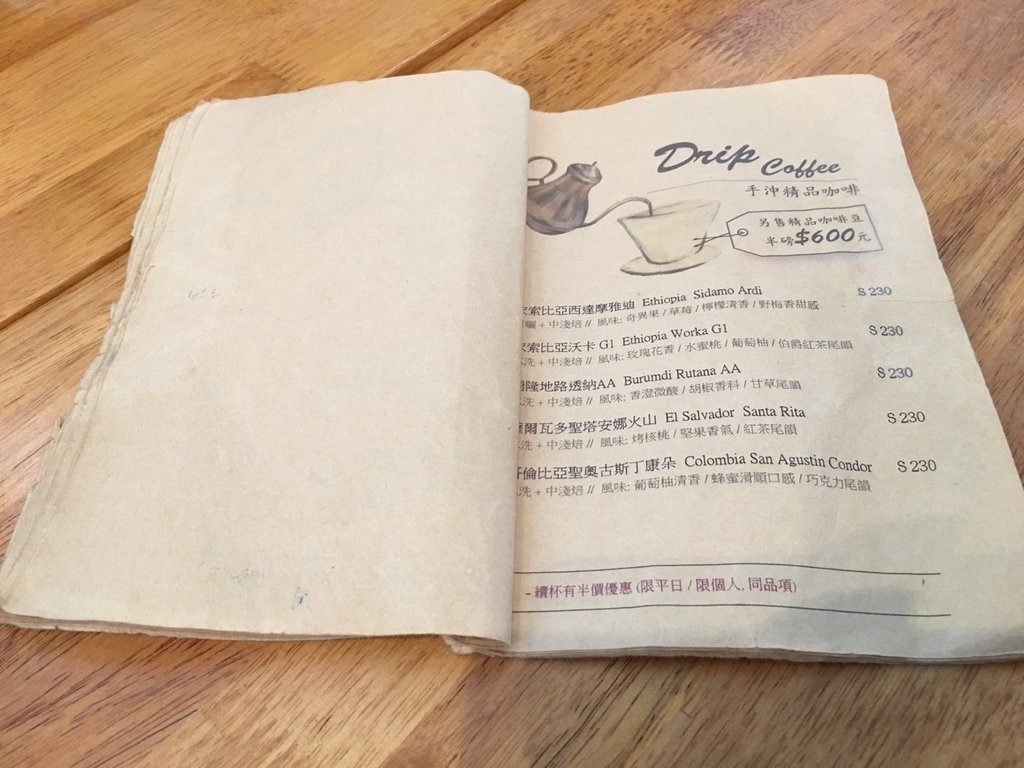 Drip Coffee
手沖精品咖啡
另售精品咖啡豆
半磅$600元
索比亞西達摩雅迪 Ethiopia Sidamo Ardi $230
曬 + 中淺焙 // 風味: 奇異果 / 草莓 / 檸檬清香 / 野莓香甜感
索比亞沃卡 G1 Ethiopia Worka G1 $230
洗 + 中淺焙 // 風味: 玫瑰花香 / 水蜜桃 / 葡萄柚 / 伯爵紅茶尾韻
隆地路透納AA Burumdi Rutana AA $230
洗 + 中淺焙 // 風味: 香澄微酸 / 胡椒香料 / 甘草尾韻
爾瓦多聖塔安娜火山 El Salvador Santa Rita $230
洗 + 中淺焙 // 風味: 烤核桃 / 堅果香氣 / 紅茶尾韻
倫比亞聖奧古斯丁康朵 Colombia San Agustin Condor $230
洗 + 中淺焙 // 風味: 葡萄柚清香 / 蜂蜜滑順口感 / 巧克力尾韻
- 續杯有半價優惠 (限平日 / 限個人, 同品項)